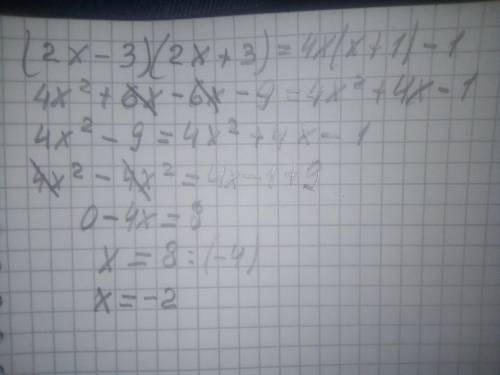 (2x - 3)(2x + 3) = 4x(x + 1) - 1
4x² + 6x - 6x - 9 = 4x² + 4x - 1
4x² - 9 = 4x² + 4x - 1
4x² - 4x² = 4x - 1 + 9
0 - 4x = 8
x = 8 : (-4)
x = -2